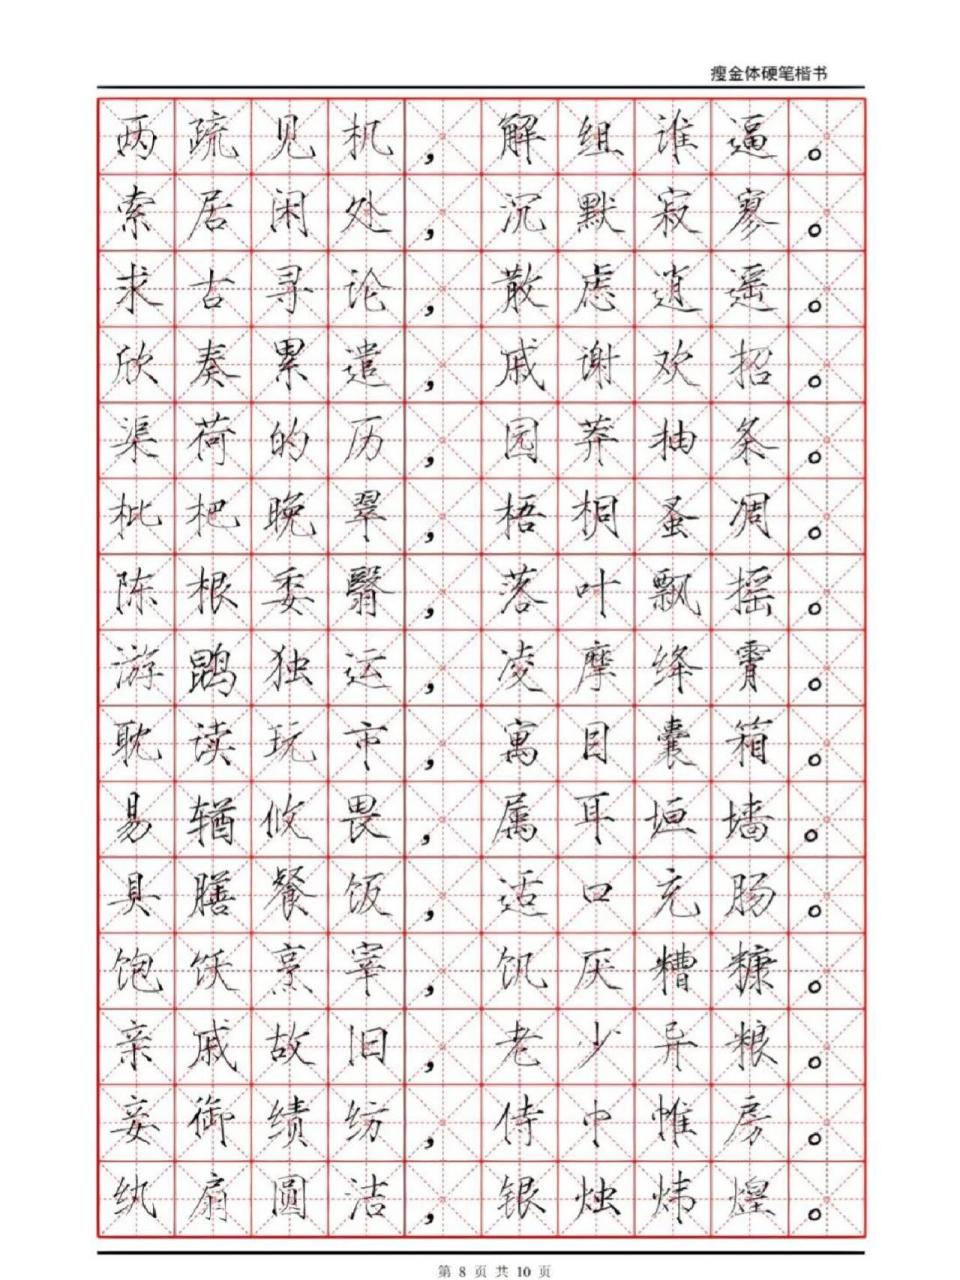 瘦金体硬笔楷书
两疏见机，解组谁逼。
索居闲处，沉默寂寥。
求古寻论，散虑逍遥。
欣奏累遣，戚谢欢招。
渠荷的历，园莽抽条。
枇杷晚翠，梧桐蚤凋。
陈根委翳，落叶飘摇。
游鹍独运，凌摩绛霄。
耽读玩市，寓目囊箱。
易輶攸畏，属耳垣墙。
具膳餐饭，适口充肠。
饱饫烹宰，饥厌糟糠。
亲戚故旧，老少异粮。
妾御绩纺，侍巾帷房。
纨扇圆洁，银烛炜煌。
第 8 页 共 10 页